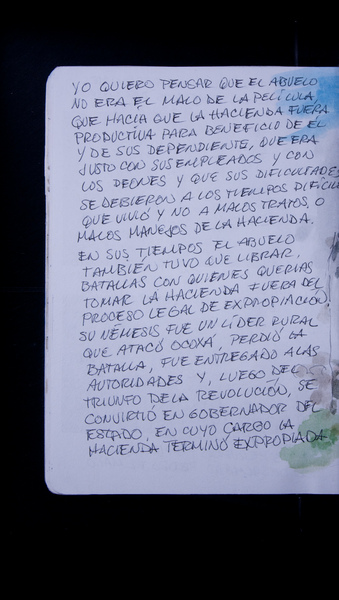 YO QUIERO PENSAR QUE EL ABUELO
NO ERA EL MALO DE LA PELÍCULA,
QUE HACÍA QUE LA HACIENDA FUERA
PRODUCTIVA PARA BENEFICIO DE ÉL
Y DE SUS DEPENDIENTE, QUE ERA
JUSTO CON SUS EMPLEADOS Y CON
LOS PEONES Y QUE SUS DIFICULTADES
SE DEBIERON A LOS TIEMPOS DIFÍCIL
QUE VIVIÓ Y NO A MALOS TRATOS O
MALOS MANEJOS DE LA HACIENDA.
EN SUS TIEMPOS EL ABUELO
TAMBIÉN TUVO QUE LIBRAR,
BATALLAS CON QUIENES QUERIAS
TOMAR LA HACIENDA FUERA DEL
PROCESO LEGAL DE EXPROPIACIÓN.
SU NÉMESIS FUE UN LÍDER RURAL
QUE ATACÓ OCOXÁ, PERDIÓ LA
BATALLA, FUE ENTREGADO A LAS
AUTORIDADES Y, LUEGO DEL
TRIUNFO DE LA REVOLUCIÓN, SE
CONVIRTIÓ EN GOBERNADOR DEL
ESTADO, EN CUYO CARGO LA
HACIENDA TERMINÓ EXPROPIADA